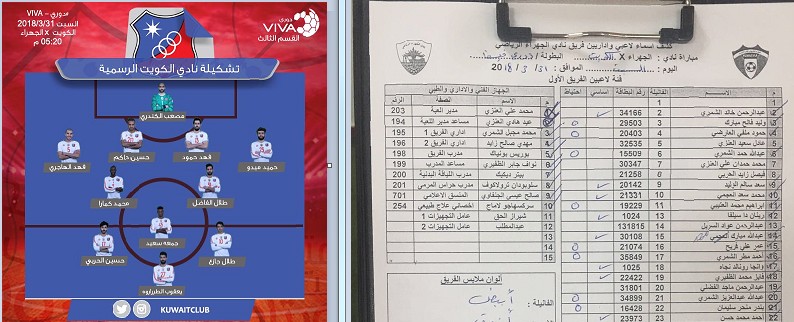 دوري - VIVA
السبت 2018/3/31
الكويت X الجهراء
05:20 م
VIVA
دوري
القسم الثالث
تشكيلة نادي الكويت الرسمية
مصعب الكندري
حميد عبدو
فهد حمود
حسين حاكم
فهد الهاجري
طلال الفاضل
محمد كمارا
جمعة سعيد
طلال جازع
حسين الحربي
يعقوب الطراروة
KUWAITCLUB
كشف أسماء لاعبي وإداريين فريق نادي الجهراء الرياضي
مباراة نادي : الجهراء X الكويت البطولة /
اليوم : السبت الموافق : 31 / 3 / 2018
فئة لاعبين الفريق الأول
م الاســـم الفانيلة رقم البطاقة أساسي احتياط
1
2 عبدالرحمن خالد الشمري 2 34166
3 وليد فالح مبارك 3 29503
4 حمود ملفي العارضي 4 20403
5 عادل سعيد العنزي 5 32535
6 عبدالله حمد الشمري 6 15509
7 محمد حمدان علي العنزي 7 30347
8 فيصل زايد الحربي 8 21258
9 سعد سالم الوليد 9 20142
10 محمد سعد العجمي 10 21331
11 ابراهيم محمد العتيبي 11 19229
12 ريتان دا سيلفا 12 1024
13 عبدالرحمن عواد السربل 13 131815
14 عبدالله مبارك 15 30108
15 عمر علي فريح 16 21074
16 أحمد مطر الشمري 17 35849
17 وانجا رونالد نجاه 18 1025
18 فايز محمد الظفيري 19 22422
19 عبدالرحمن ماجد الفضلي 20 31801
20 عبدالله عبدالعزيز الشمري 21 34899
21 بندر متحر سليمان 22 16428
22 أحمد محمد حسن 23 23973
الجهاز الفني والاداري والطبي
م الاسم الصفة الرقم
1 محمد علي العنزي مدير العبة 203
2 عيد هادي العنزي مساعد مدير اللعبة 194
3 محمد مجبل الشمري اداري الفريق 1 195
4 مهدي صالح زايد اداري الفريق 2 196
5 بوريس بونياك مدرب الفريق 198
6 نواف جابر الظفيري مساعد المدرب 199
7 بيتر ديكيك مدرب اللياقة البدنية 200
8 سلوبودان ترولاكوف مدرب حراس المرمى 201
9 صالح عيسى الجنفاوي المنسق الاعلامي 701
10 سركسهاجو لاماج اخصائي علاج طبيعي 254
11 شيراز الحق عامل التجهيزات 1
12 عبدالمطلب عامل التجهيزات 2
13
14
15
ألوان ملابس الفريق
الفانيلة : أبيض